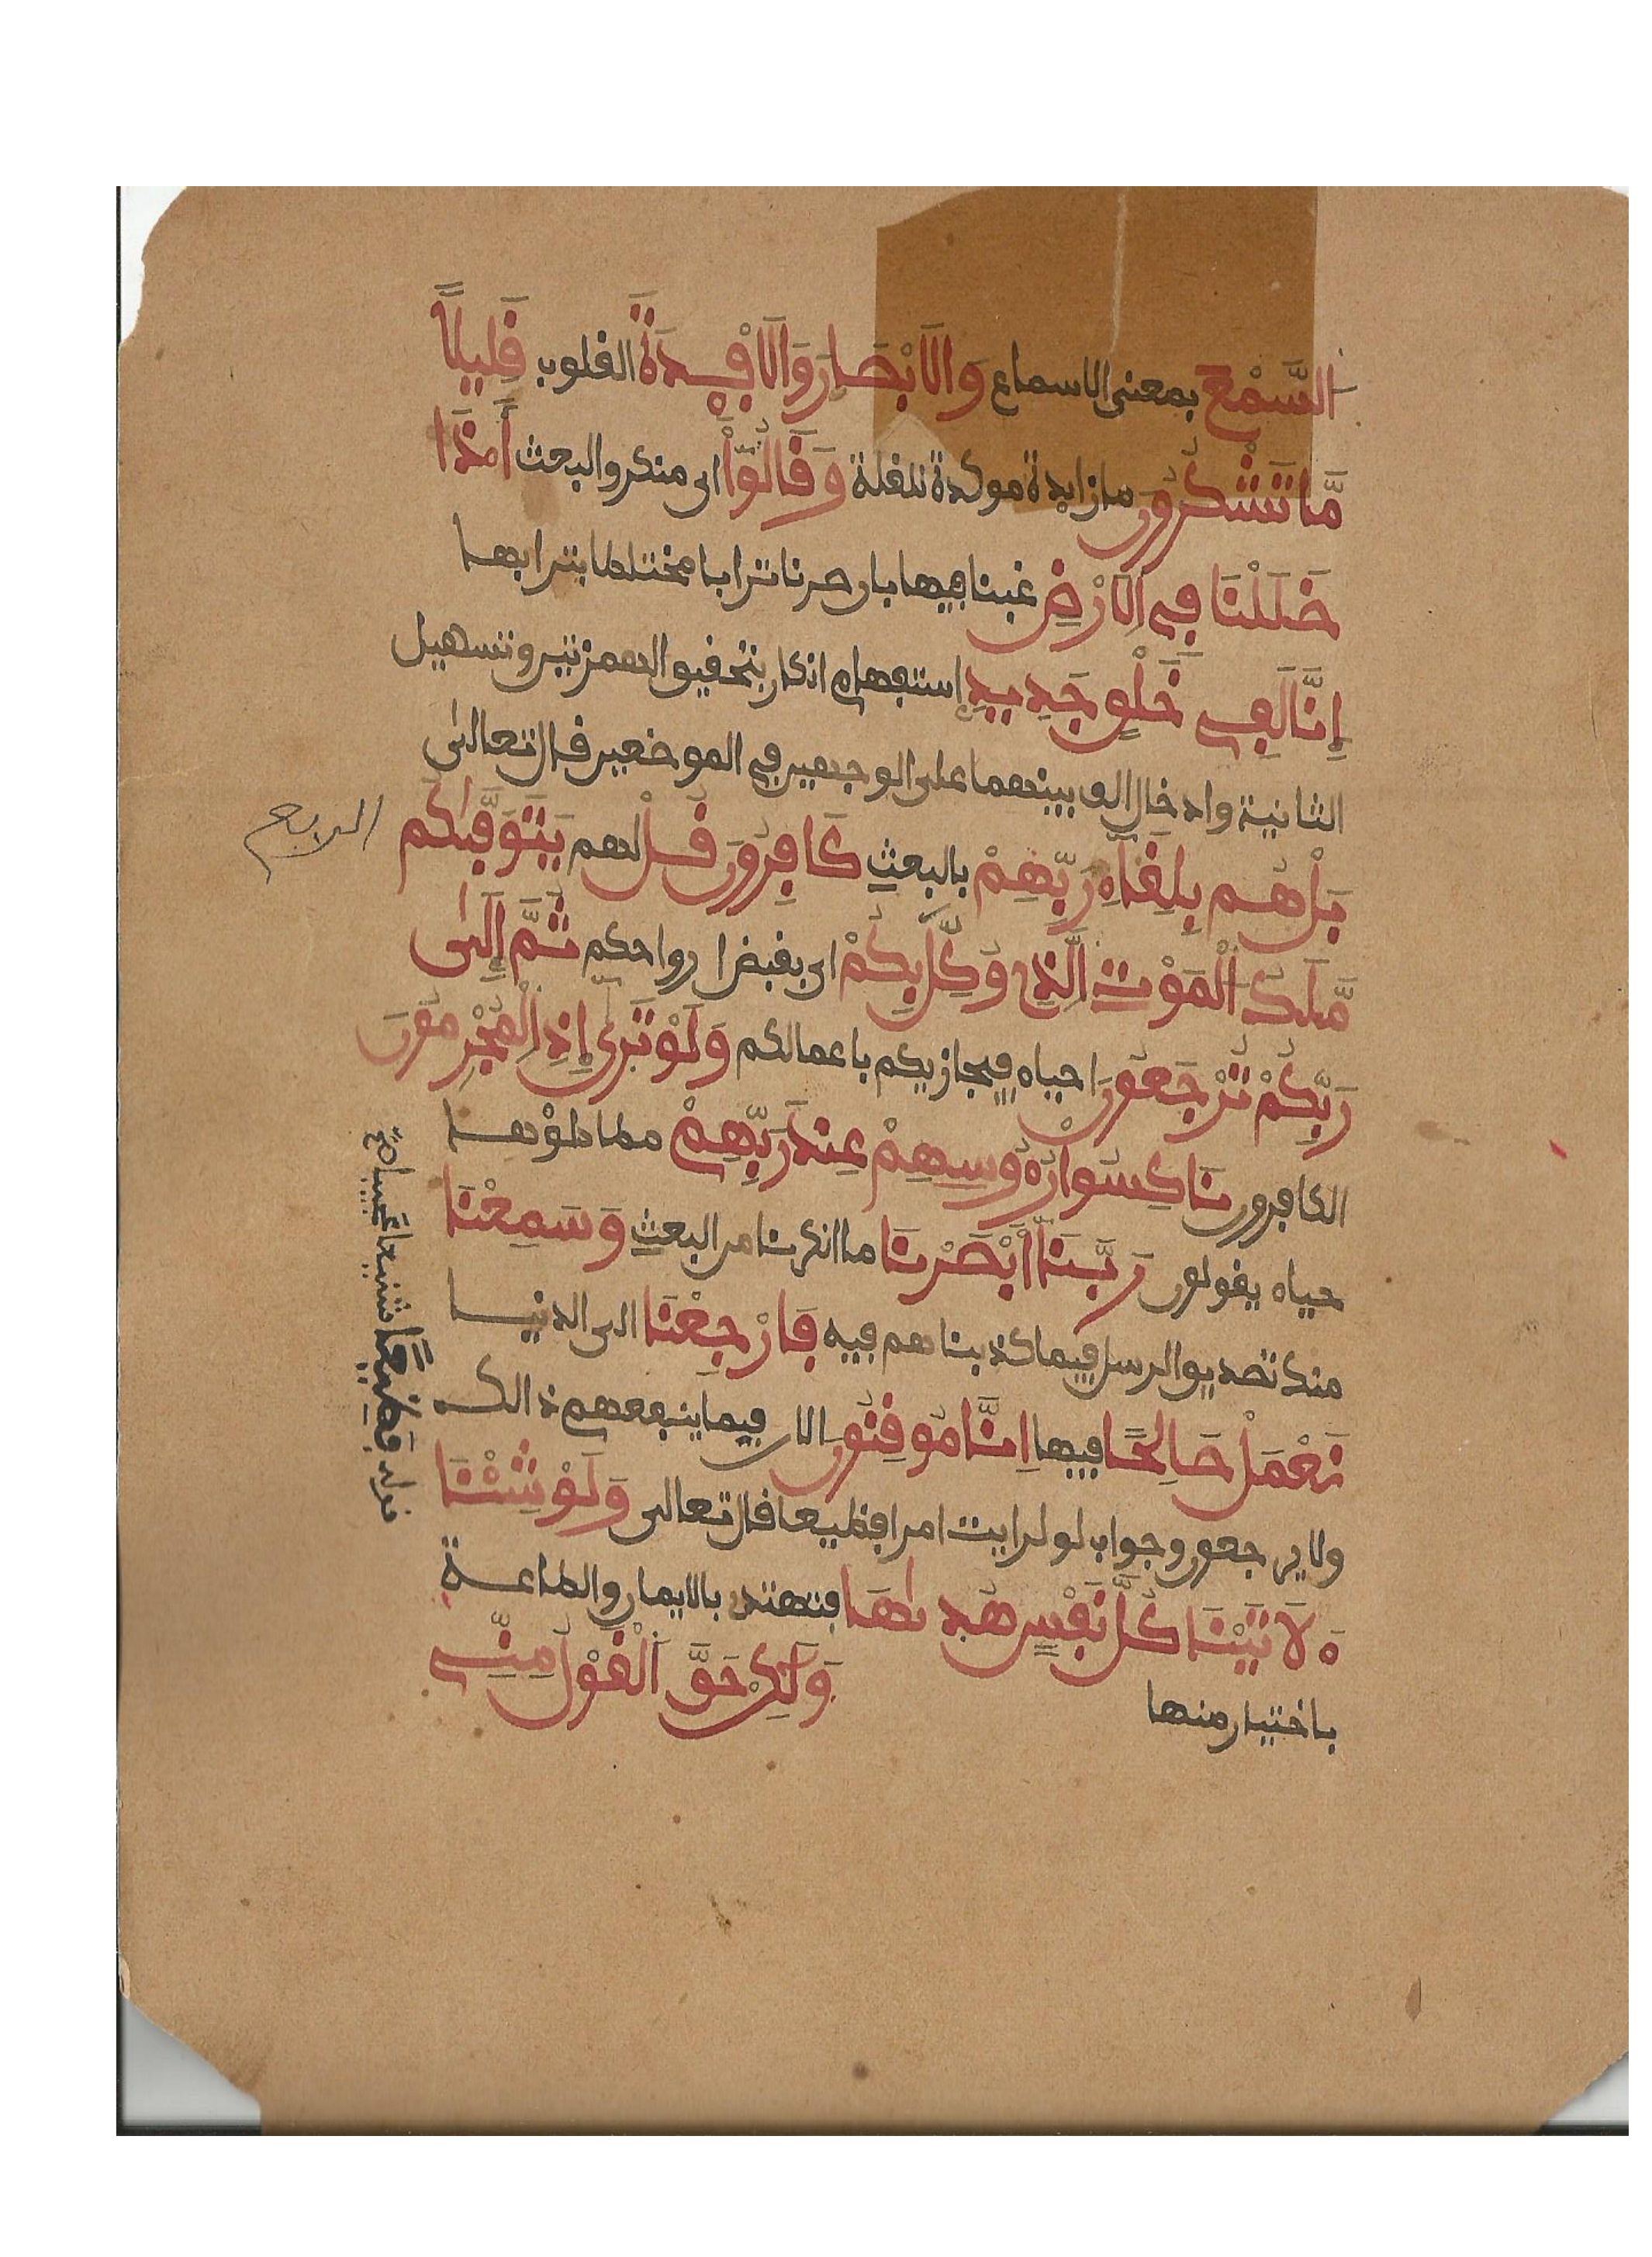 السَّمْعَ بمعنى الاسماع وَالَابْصَارَ وَالَافْـِٕدَةَ القلوب قَلِيلًا
مَّا تَشْكُرُونَ ما زايدة موكدة للقلة وَقَالُوٓاْ اى منكروا البعث أَ.ذَا
ضَلَلْنَا فِي الَارْضِ غبنا فيها بان صرنا ترابا مختلطا بترابها
إِنَّا لَفِي خَلْقٍ جَدِيدٍ إستفهام انكار بتحقيق الهمزتين وتسهيل
الثانية وادخال الف بينهما على الوجهين في الموضعين قال تعالى
بَلْ هُم بِلِقَآءِ رَبِّهِمْ بالبعثِ كَافِرُونَ قُلْ لهم يَتَوَفَّىٰكُم
مَّلَكُ الْمَوْتِ الَّذِي وُكِّلَ بِكُمْ اى بقبض ارواحكم ثُمَّ إِلَىٰ
رَبِّكُمْ تُرْجَعُونَ احياء فيجازيكم باعمالكم وَلَوْ تَرَىٰ إِذِ الْمُجْرِمُونَ
الكافرون نَاكِسُواْ رُءُوسِهِمْ عِندَ رَبِّهِمْ مطاطؤها
حياء يقولون رَبَّنَآ أَبْصَرْنَا ما انكرنا من البعثِ وَسَمِعْنَا
منك تصديق الرسل فيما كذبناهم فيه فَارْجِعْنَا الى الدنيا
نَعْمَلْ صَالِحًا فيها اِنَّا مُوقِنُونَ الان فيما ينفعهم ذالك
ولا يرجعون وجواب لو لرايت امرا فظيعا قال تعالى وَلَوْ شِئْنَا
ءَلَاتَيْنَا كُلَّ نَفْسٍ هُدَىٰهَا فتهتدي بالايمان والطاعة
باختيار منها وَلَٰكِنْ حَقَّ الْقَوْلُ مِنِّي
قوله فظيعًا شنيعا